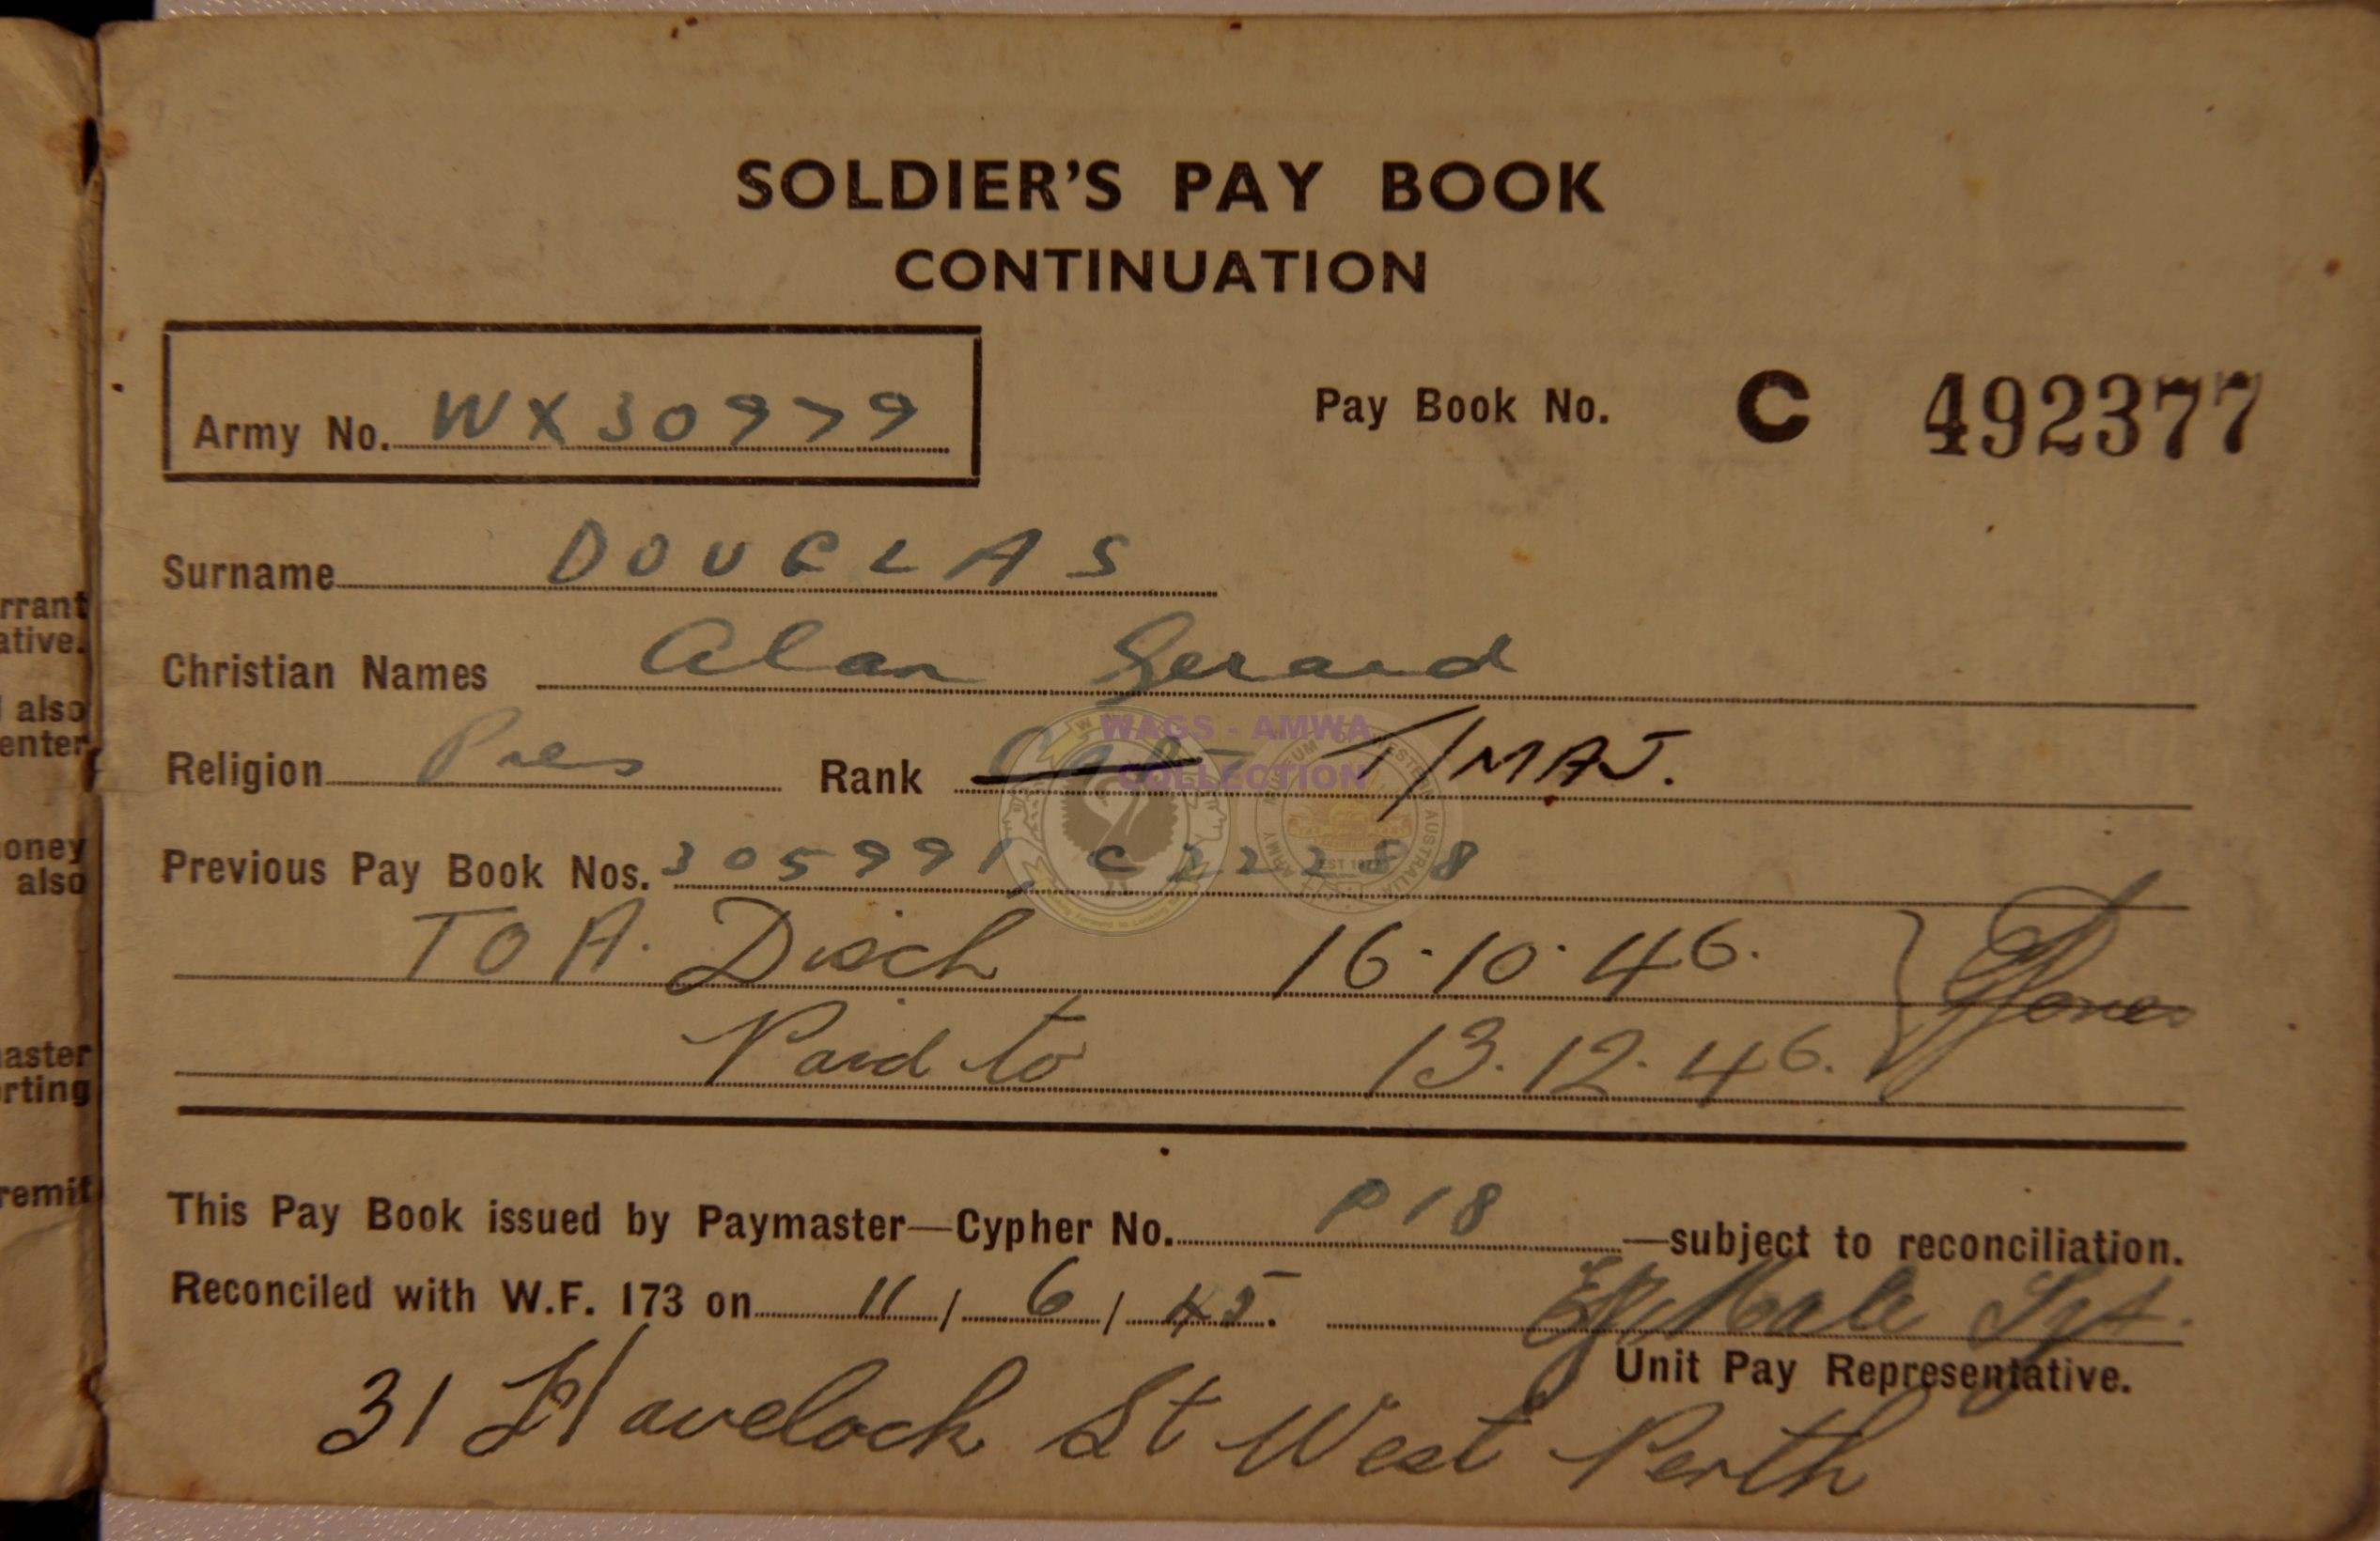 SOLDIER'S PAY BOOK
CONTINUATION
Army No. WX30979
Pay Book No. C 492377
Surname DOUGLAS
Christian Names Alan Gerard
Religion Pres Rank Capt T/MAJ.
WAGS - AMWA
COLLECTION
Previous Pay Book Nos. 305991, C 22288
TO A. Disch 16.10.46.
Paid to 13.12.46.
This Pay Book issued by Paymaster—Cypher No. P18 —subject to reconciliation.
Reconciled with W.F. 173 on 11 / 6 / 45. Sgt.
Unit Pay Representative.
31 Havelock St West Perth
rrant
ative.
also
enter
oney
also
aster
rting
remit